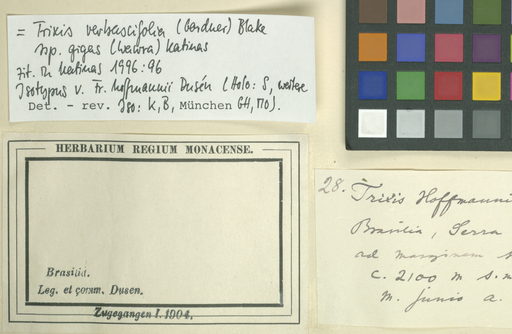 = Trixis verbascifolia (Gardner) Blake
ssp. gigas (Wawra) Katinas
fit. D. Katinas 1996: 96
Isotypus v. Tr. hoffmannii Dusén (Holo: S, weitere
Det. - rev. Iso: K, B, München GH, MO).
HERBARIUM REGIUM MONACENSE.
Brasilia.
Leg. et comm. Dusen.
Zugegangen I. 1904.
28. Trixis Hoffmanni
Brasilia, Serra
ad marginem
c. 2100 m s.m
m. junio a.